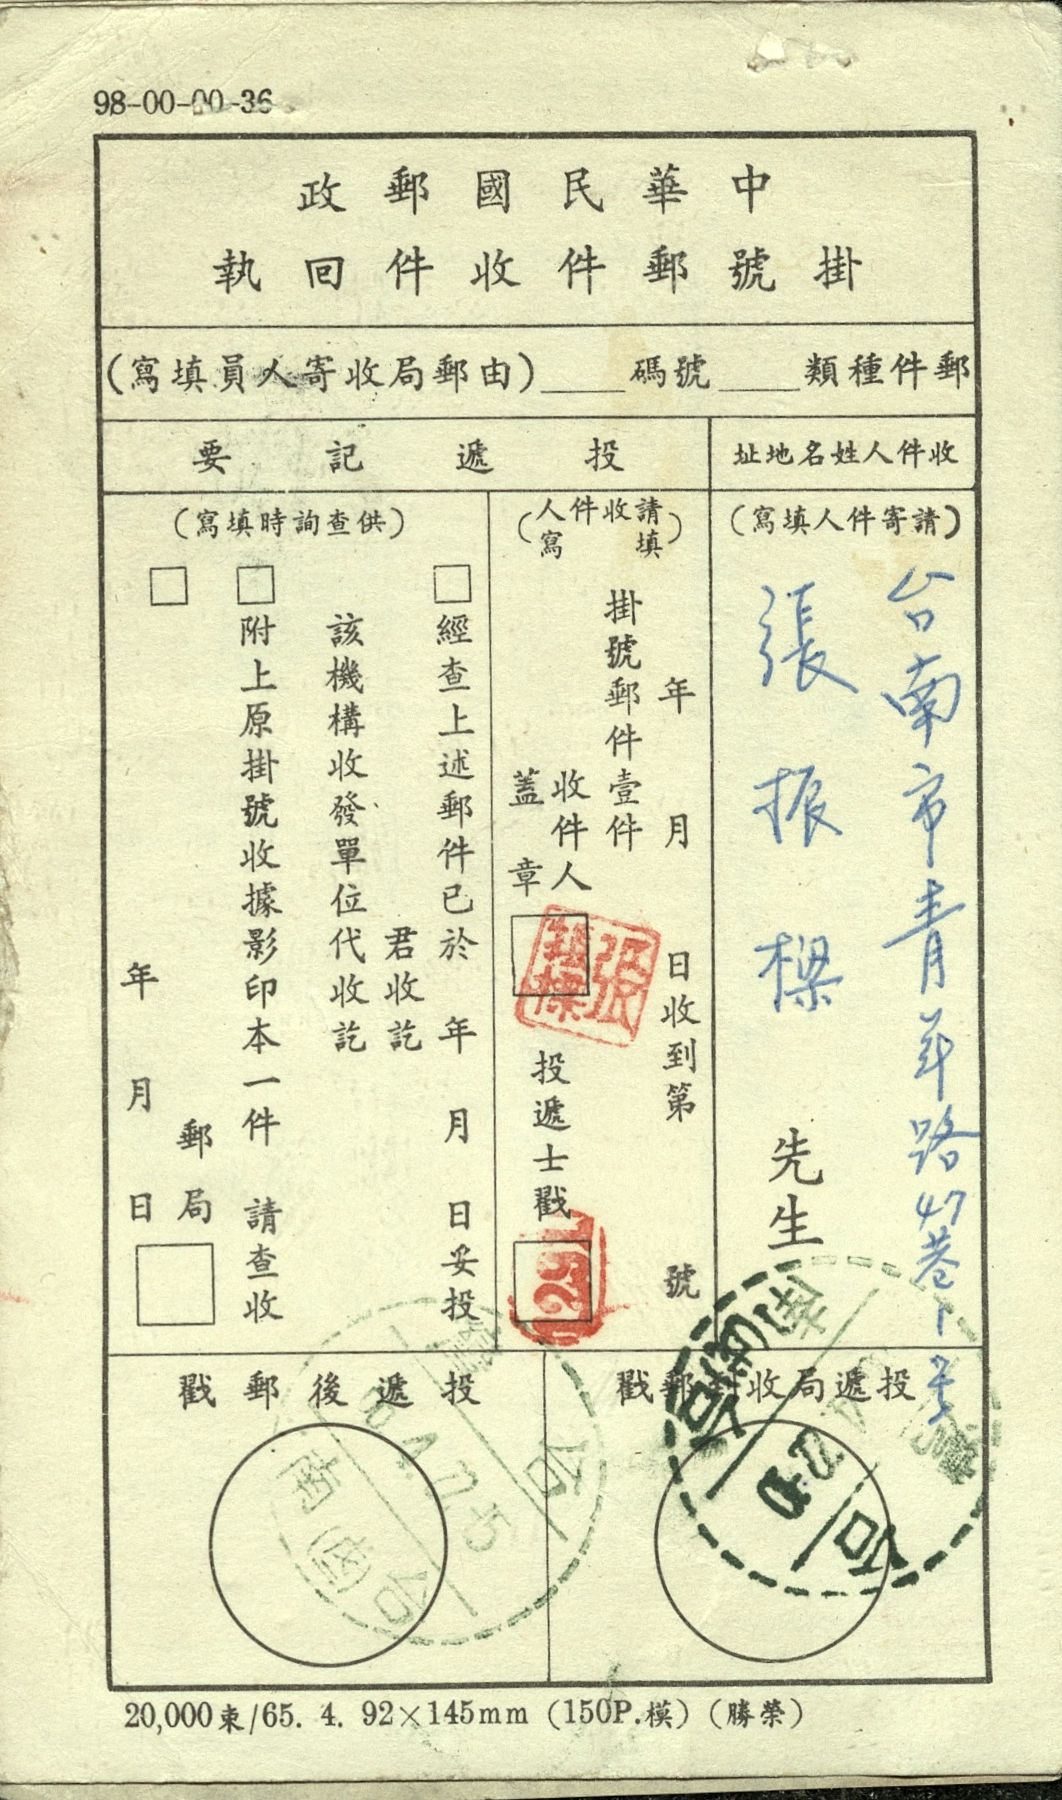 98-00-00-36
中華民國郵政
掛號郵件收件回執
郵件種類____號碼____(由郵局收寄人員填寫)
收件人姓名地址
投遞記要
(請寄件人填寫)
台南市青年路47巷1號
張振樑 先生
(請收件人填寫)
年 月 日收到第 號
掛號郵件壹件
收件人
蓋章
張
樑
投遞士戳
129
(供查詢時填寫)
□經查上述郵件已於 年 月 日妥投
君收訖
該機構收發單位代收訖
□附上原掛號收據影印本一件 請查收
□
郵局
年 月 日
投遞局收到郵戳
投遞後郵戳
台南
台
台
20,000束/65. 4. 92×145mm (150P.模) (勝榮)